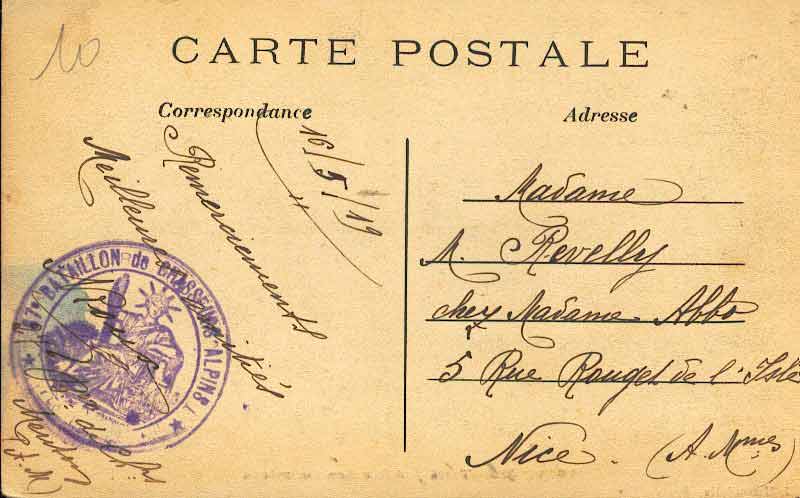 10
CARTE POSTALE
Correspondance
Adresse
16/5/19
Remerciements
Meilleures amitiés
67e BATAILLON de CHASSEURS ALPINS
Menton
(A. M)
Madame
M. Revelly
chez Madame Abbo
5 Rue Rouget de l'Isle
Nice. (A. Mmes)